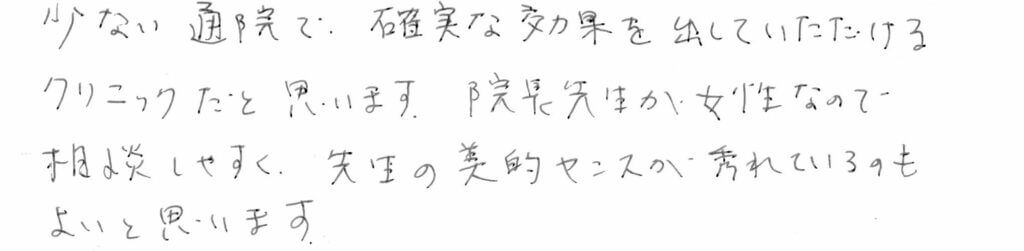 少ない通院で、確実な効果を出していただける
クリニックだと思います。院長先生が女性なので
相談しやすく、先生の美的センスが秀れているのも
よいと思います。